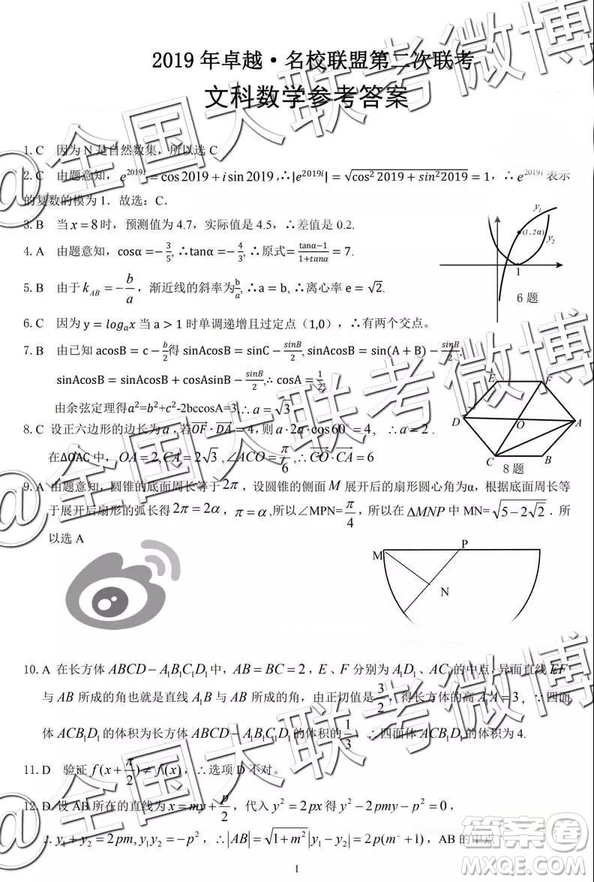 2019 年卓越·名校联盟第二次联考
文科数学参考答案
1. C 因为 N 是自然数集，所以选 C
2. C 由题意知，e^{2019i}=cos2019+isin2019,∴|e^{2019i}|=√(cos²2019+sin²2019)=1，∴e^{2019i}表示
的复数的模为 1．故选：C.
3. B 当 x=8 时，预测值为 4.7，实际值是 4.5，∴差值是 0.2.
4. A 由题意知，cosα=-3/5, ∴tanα=-4/3，∴原式=(tanα-1)/(1+tanα)=7.
5. B 由于 k_{AB}=-b/a，渐近线的斜率为b/a, ∴a=b, ∴离心率 e=√2.
6. C 因为 y=log_a x 当 a>1 时单调递增且过定点(1,0)，∴有两个交点。
y₁
(1,2a)
y₂
1
6 题
7. B 由已知 acosB=c-b/2得 sinAcosB=sinC-sinB/2, sinAcosB=sin(A+B)-sinB/2,
sinAcosB=sinAcosB+cosAsinB-sinB/2, ∴cosA=1/2,
由余弦定理得a²=b²+c²-2bccosA=3, ∴a=√3
8. C 设正六边形的边长为 a, 若OF·DA=4，则 a·2a·cos60°=4, ∴a=2.
在ΔOAC 中，OA=2,CA=2√3,∠ACO=π/6,
E
F
D
O
A
C
B
8 题
9. A 由题意知，圆锥的底面周长等于2π，设圆锥的侧面 M 展开后的扇形圆心角为α，根据底面周长等
于展开后扇形的弧长得2π=2α，π=α,所以∠MPN=π/4，所以在ΔMNP 中 MN=√(5-2√2)．所
以选 A
M
P
N
10. A 在长方体 ABCD-A₁B₁C₁D₁中, AB=BC=2，E、F 分别为 A₁D₁、AC₁的中点，异面直线 EF
与 AB 所成的角也就是直线与 AB 所成的角，由正切值是3/2，得长方体的高 AA₁=3，∴四面
体 ACB₁D₁的体积为长方体 ABCD-A₁B₁C₁D₁的体积的1/3，∴四面体 ACB₁D₁的体积为 4.
11. D 验证 f(x+π/2)≠f(x)，∴选项 D 不对。
12. D 设 AB 所在的直线为 x=my+p/2，代入 y²=2px 得 y²-2pmy-p²=0，
∴y₁+y₂=2pm, y₁y₂=-p²，∴|AB|=√(1+m²)|y₁-y₂|=2p(m²+1)，AB 的中点
1
@全国大联考微博
@全国大联考微博
@全国大联考微博
答案圈
MXQE.COM